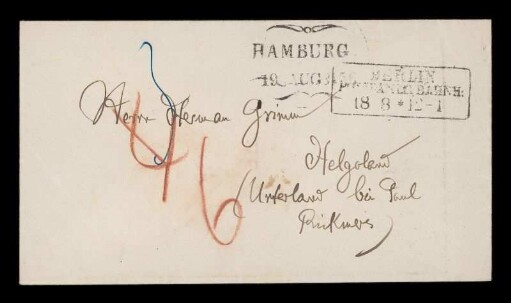 HAMBURG
19 AUG
BERLIN
18 8 * 12-1
Herrn Herman Grimm
Helgoland
Unterland bei Paul
Rickmers
4 6